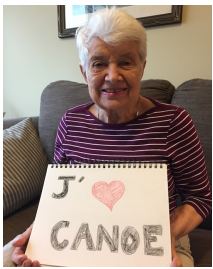 J' ♥
CANOE